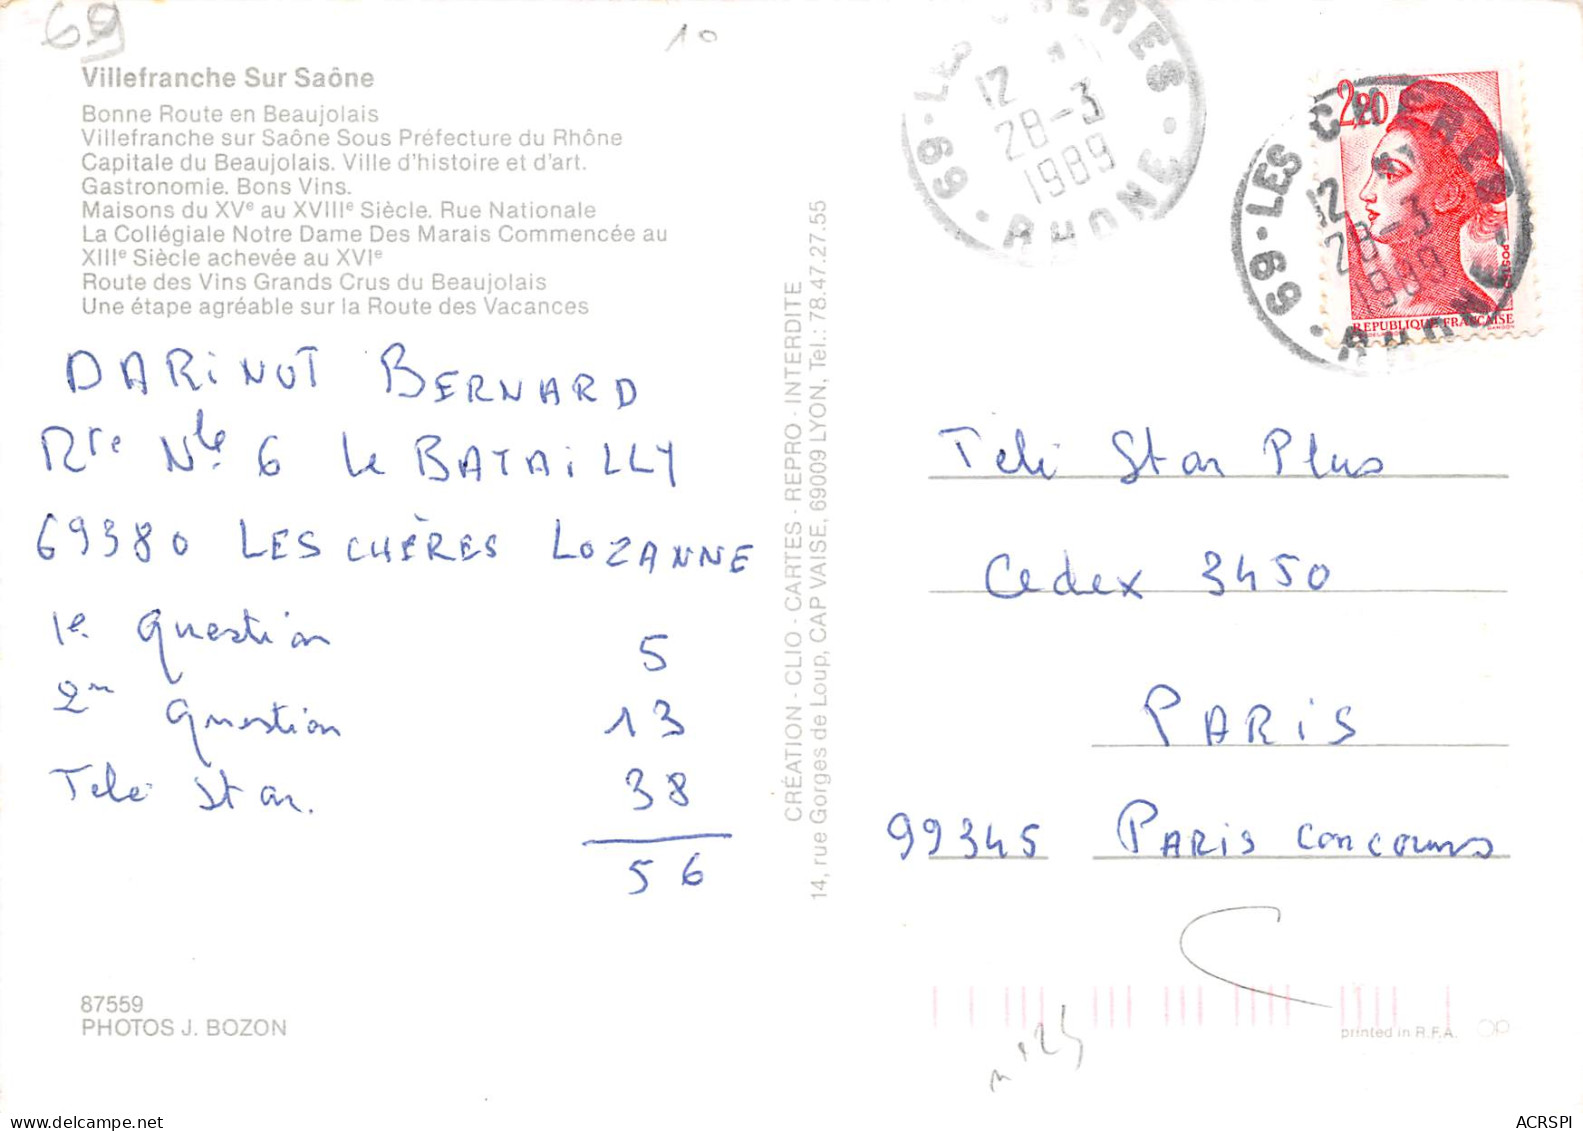 69
10
Villefranche Sur Saône
Bonne Route en Beaujolais
Villefranche sur Saône Sous Préfecture du Rhône
Capitale du Beaujolais. Ville d'histoire et d'art.
Gastronomie. Bons Vins.
Maisons du XVe au XVIIIe Siècle. Rue Nationale
La Collégiale Notre Dame Des Marais Commencée au
XIIIe Siècle achevée au XVIe
Route des Vins Grands Crus du Beaujolais
Une étape agréable sur la Route des Vacances
DARINOT BERNARD
Rte Nle 6 Le BATAILLY
69380 LES CHÈRES LOZANNE
1e Question 5
2m Question 13
Tele Star. 38
56
87559
PHOTOS J. BOZON
CRÉATION - CLIO - CARTES - REPRO - INTERDITE
14, rue Gorges de Loup, CAP VAISE, 69009 LYON, Tel.: 78.47.27.55
69 · LES CHERES · RHONE
12
28-3
1989
2,20
POSTES
REPUBLIQUE FRANÇAISE
69 · LES CHERES · RHONE
12
28-3
1989
Télé Star Plus
Cedex 3450
PARIS
99345 PARIS concours
printed in R.F.A.
ACRSPI